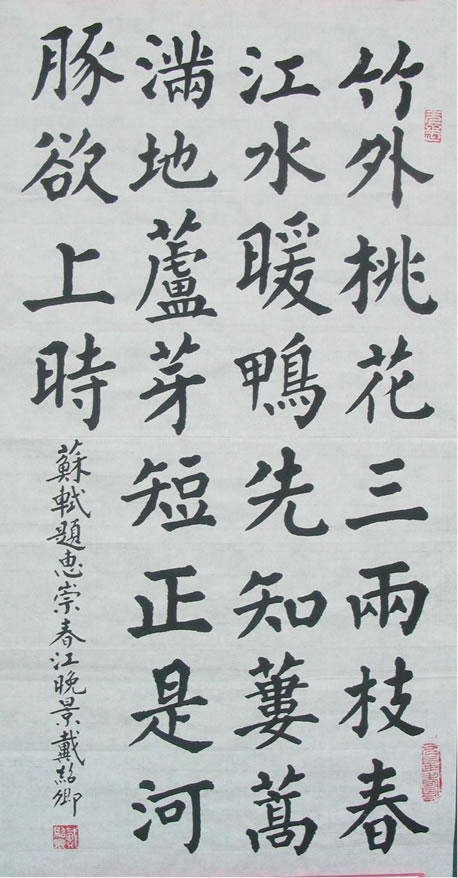 竹外桃花三兩枝春
江水暖鴨先知蔞蒿
滿地蘆芽短正是河
豚欲上時
蘇軾題惠崇春江晚景戴紹卿